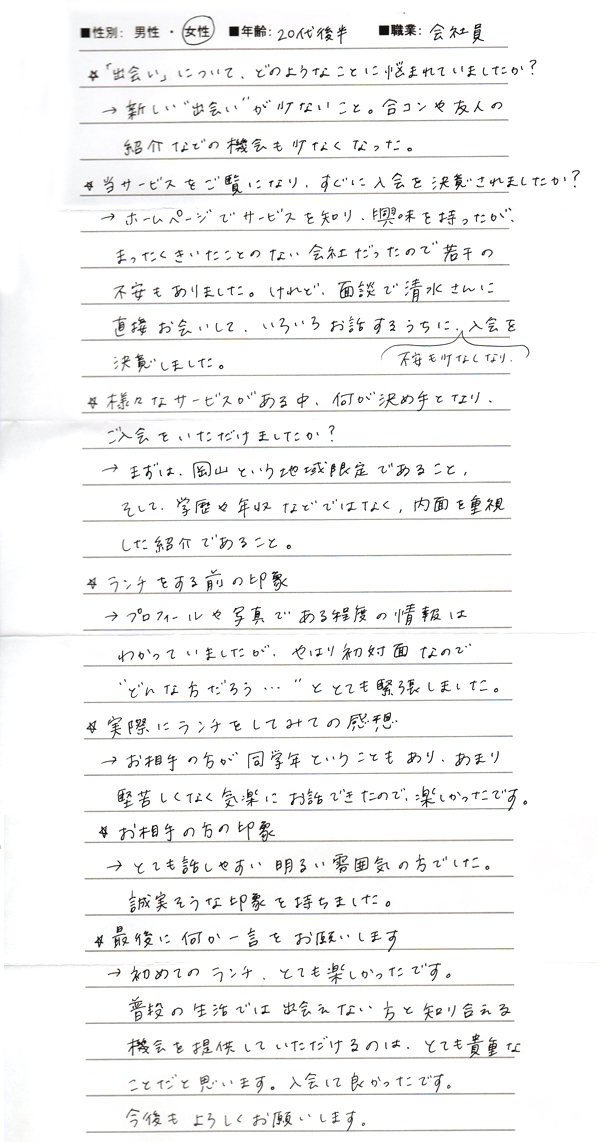 ■性別: 男性 ・ 女性 ■年齢: 20代後半 ■職業: 会社員
☆「出会い」について、どのようなことに悩まれていましたか?
→ 新しい“出会い”が少ないこと。合コンや友人の
紹介などの機会も少なくなった。
☆ 当サービスをご覧になり、すぐに入会を決意されましたか?
→ ホームページでサービスを知り、興味を持ったが、
まったくきいたことのない会社だったので若干の
不安もありました。けれど、面談で清水さんに
直接お会いして、いろいろお話するうちに、入会を
不安も少なくなり、
決意しました。
☆ 様々なサービスがある中、何が決め手となり、
ご入会をいただけましたか?
→ まずは、岡山という地域限定であること、
そして、学歴や年収などではなく、内面を重視
した紹介であること。
☆ ランチをする前の印象
→ プロフィールや写真である程度の情報は
わかっていましたが、やはり初対面なので
“どんな方だろう…”ととても緊張しました。
☆ 実際にランチをしてみての感想
→ お相手の方が同学年ということもあり、あまり
堅苦しくなく気楽にお話できたので、楽しかったです。
☆ お相手の方の印象
→ とても話しやすい明るい雰囲気の方でした。
誠実そうな印象を持ちました。
☆ 最後に何か一言をお願いします
→ 初めてのランチ、とても楽しかったです。
普段の生活では出会えない方と知り合える
機会を提供していただけるのは、とても貴重な
ことだと思います。入会して良かったです。
今後もよろしくお願いします。